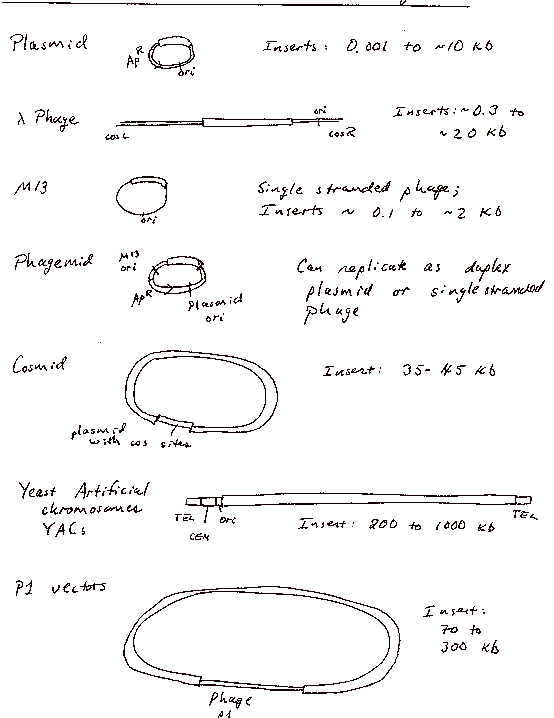 Plasmid
Ap R
ori
Inserts: 0.001 to ~10 kb
λ Phage
cos L
ori
cos R
Inserts: ~0.3 to
~20 kb
M13
ori
Single stranded phage;
Inserts ~ 0.1 to ~2 kb
Phagemid
M13
ori
Ap R
plasmid
ori
Can replicate as duplex
plasmid or single stranded
phage
Cosmid
plasmid
with cos sites
Insert: 35-45 kb
Yeast Artificial
chromosomes
YACs
TEL
CEN
ori
TEL
Insert: 200 to 1000 kb
P1 vectors
Phage
P1
Insert:
70 to
300 kb